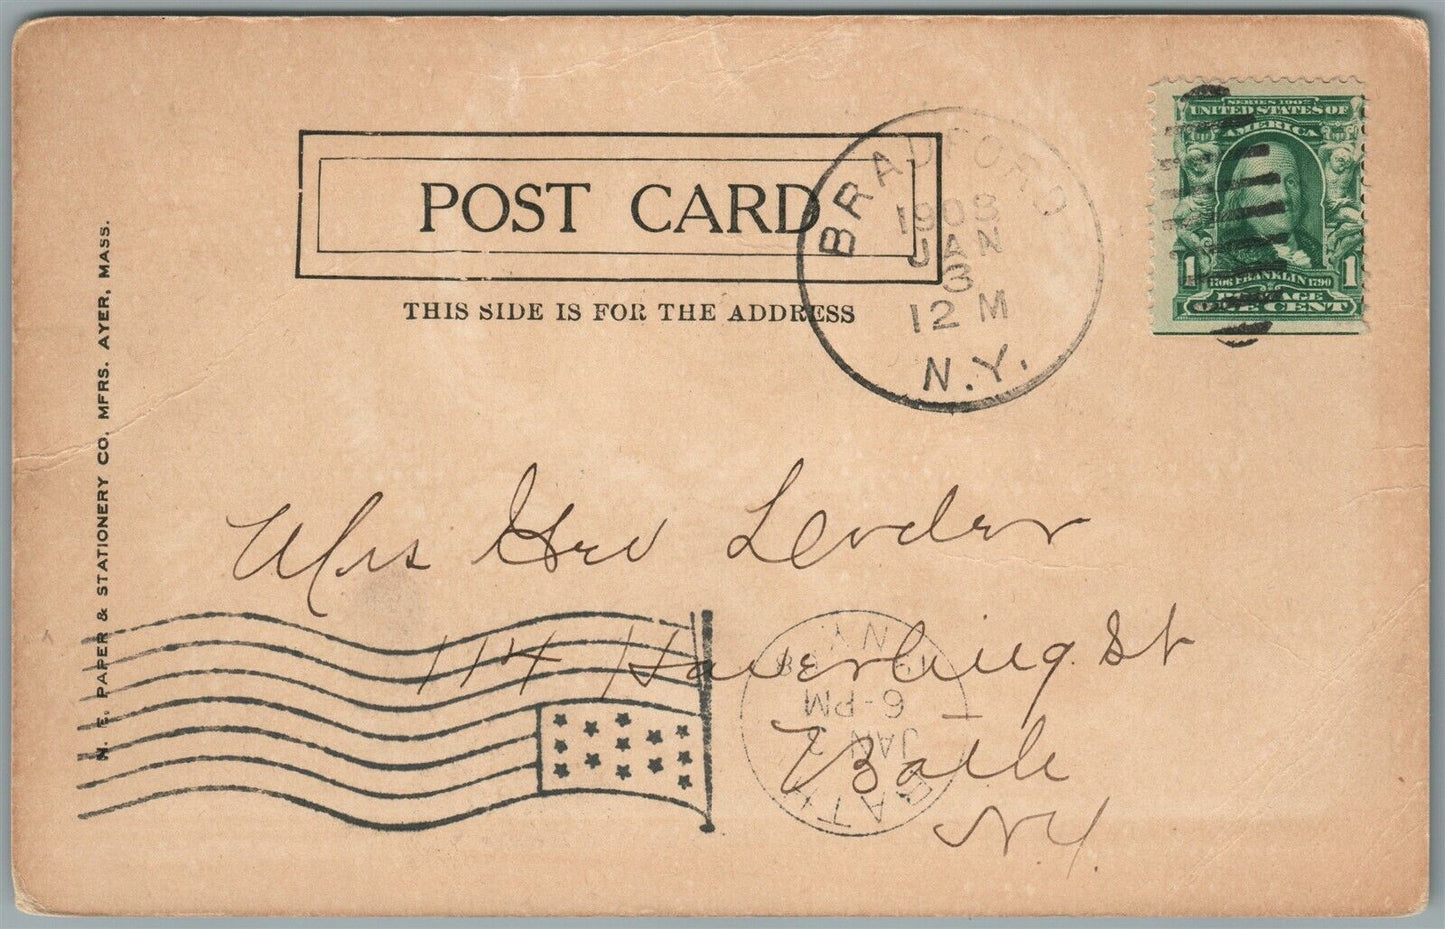 POST CARD
THIS SIDE IS FOR THE ADDRESS
N. E. PAPER & STATIONERY CO. MFRS. AYER, MASS.
BRADFORD
1908
JAN
3
12 M
N.Y.
SERIES 1902
UNITED STATES OF
AMERICA
1 1706 FRANKLIN 1790 1
POSTAGE
ONE CENT
Mrs Geo Loder
114 Haverling St
Bath
N.Y.
BATH
JAN
6-PM
N.Y.